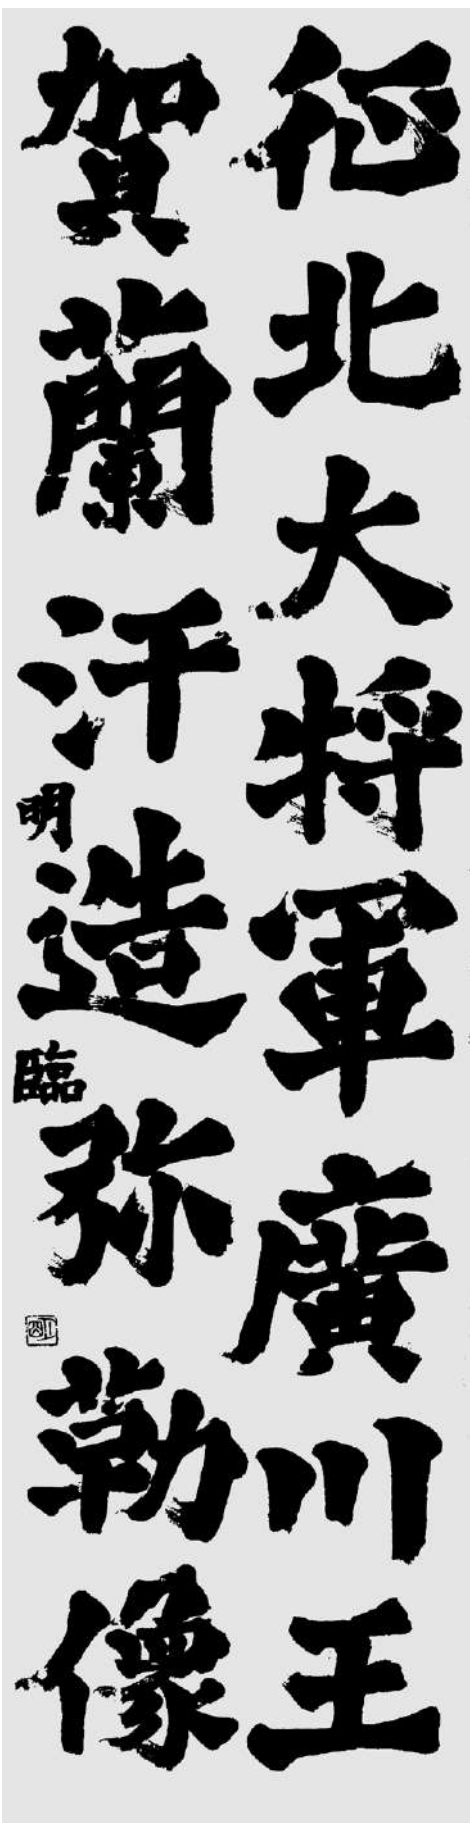 征北大将軍廣川王
賀蘭汗造弥勒像
明臨